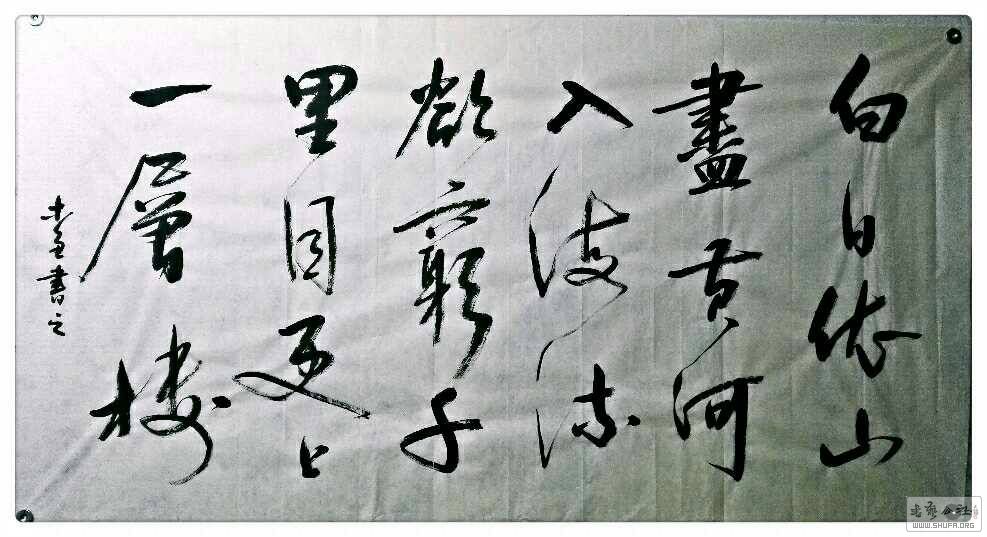 白日依山
盡黄河
入海流
欲窮千
里目更上
一層樓
書之
書藝公社
WWW.SHUFA.ORG